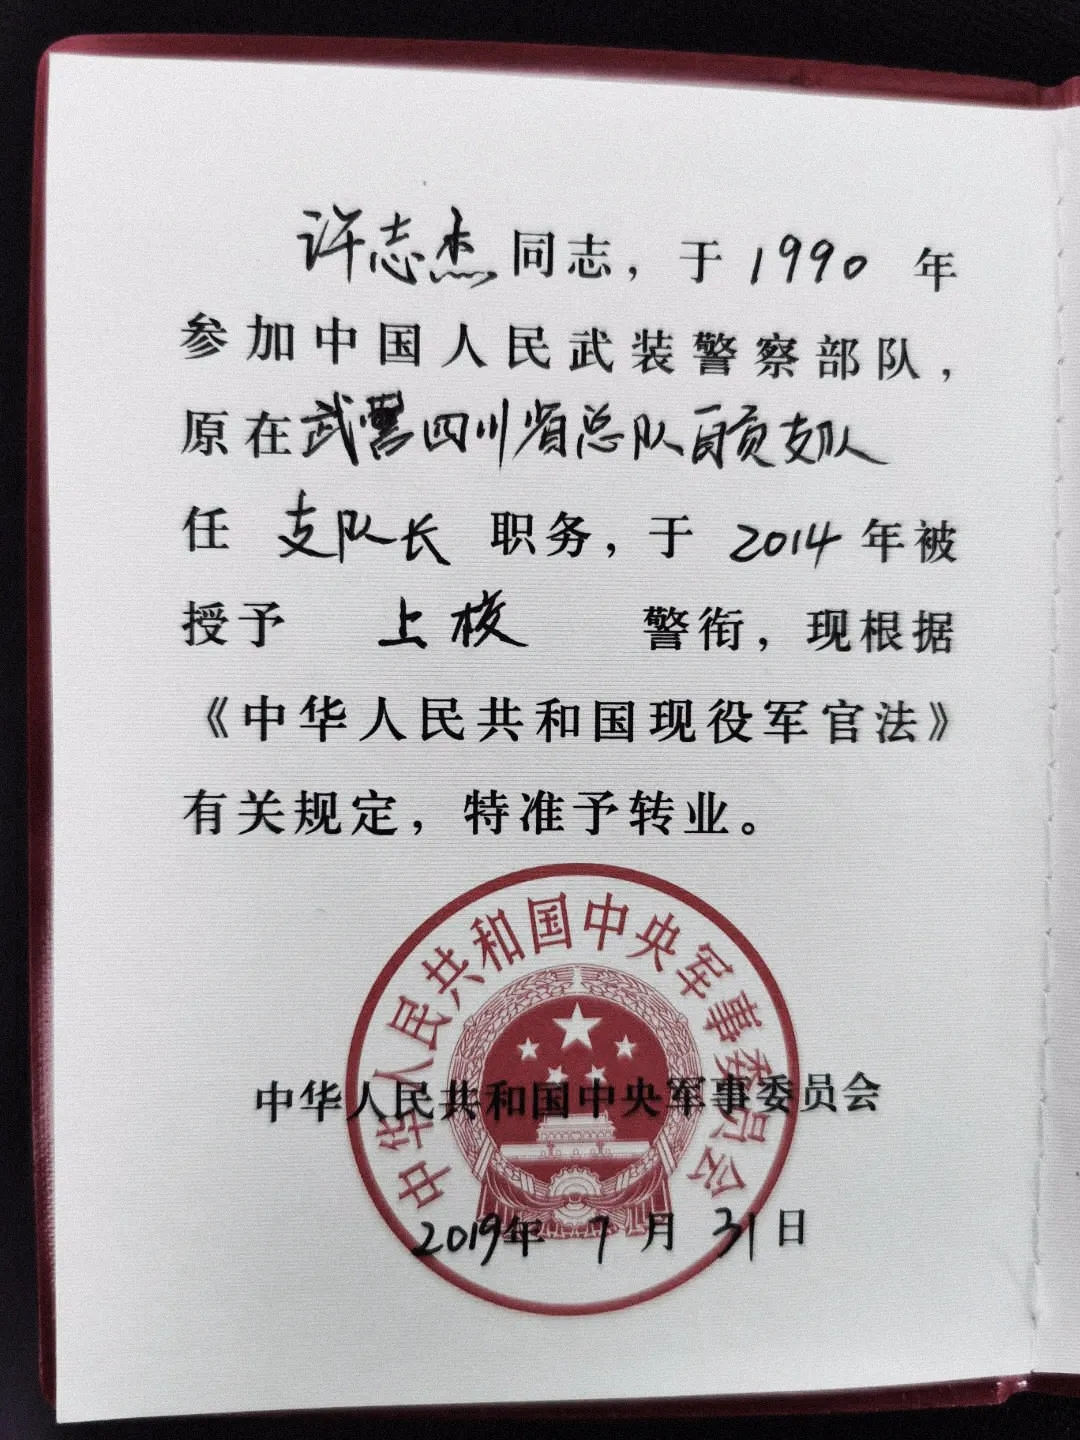 许志杰同志，于1990年
参加中国人民武装警察部队，
原在武警四川省总队自贡支队
任 支队长 职务，于 2014年被
授予 上校 警衔，现根据
《中华人民共和国现役军官法》
有关规定，特准予转业。
中华人民共和国中央军事委员会
中华人民共和国中央军事委员会
2019年 7月 31日